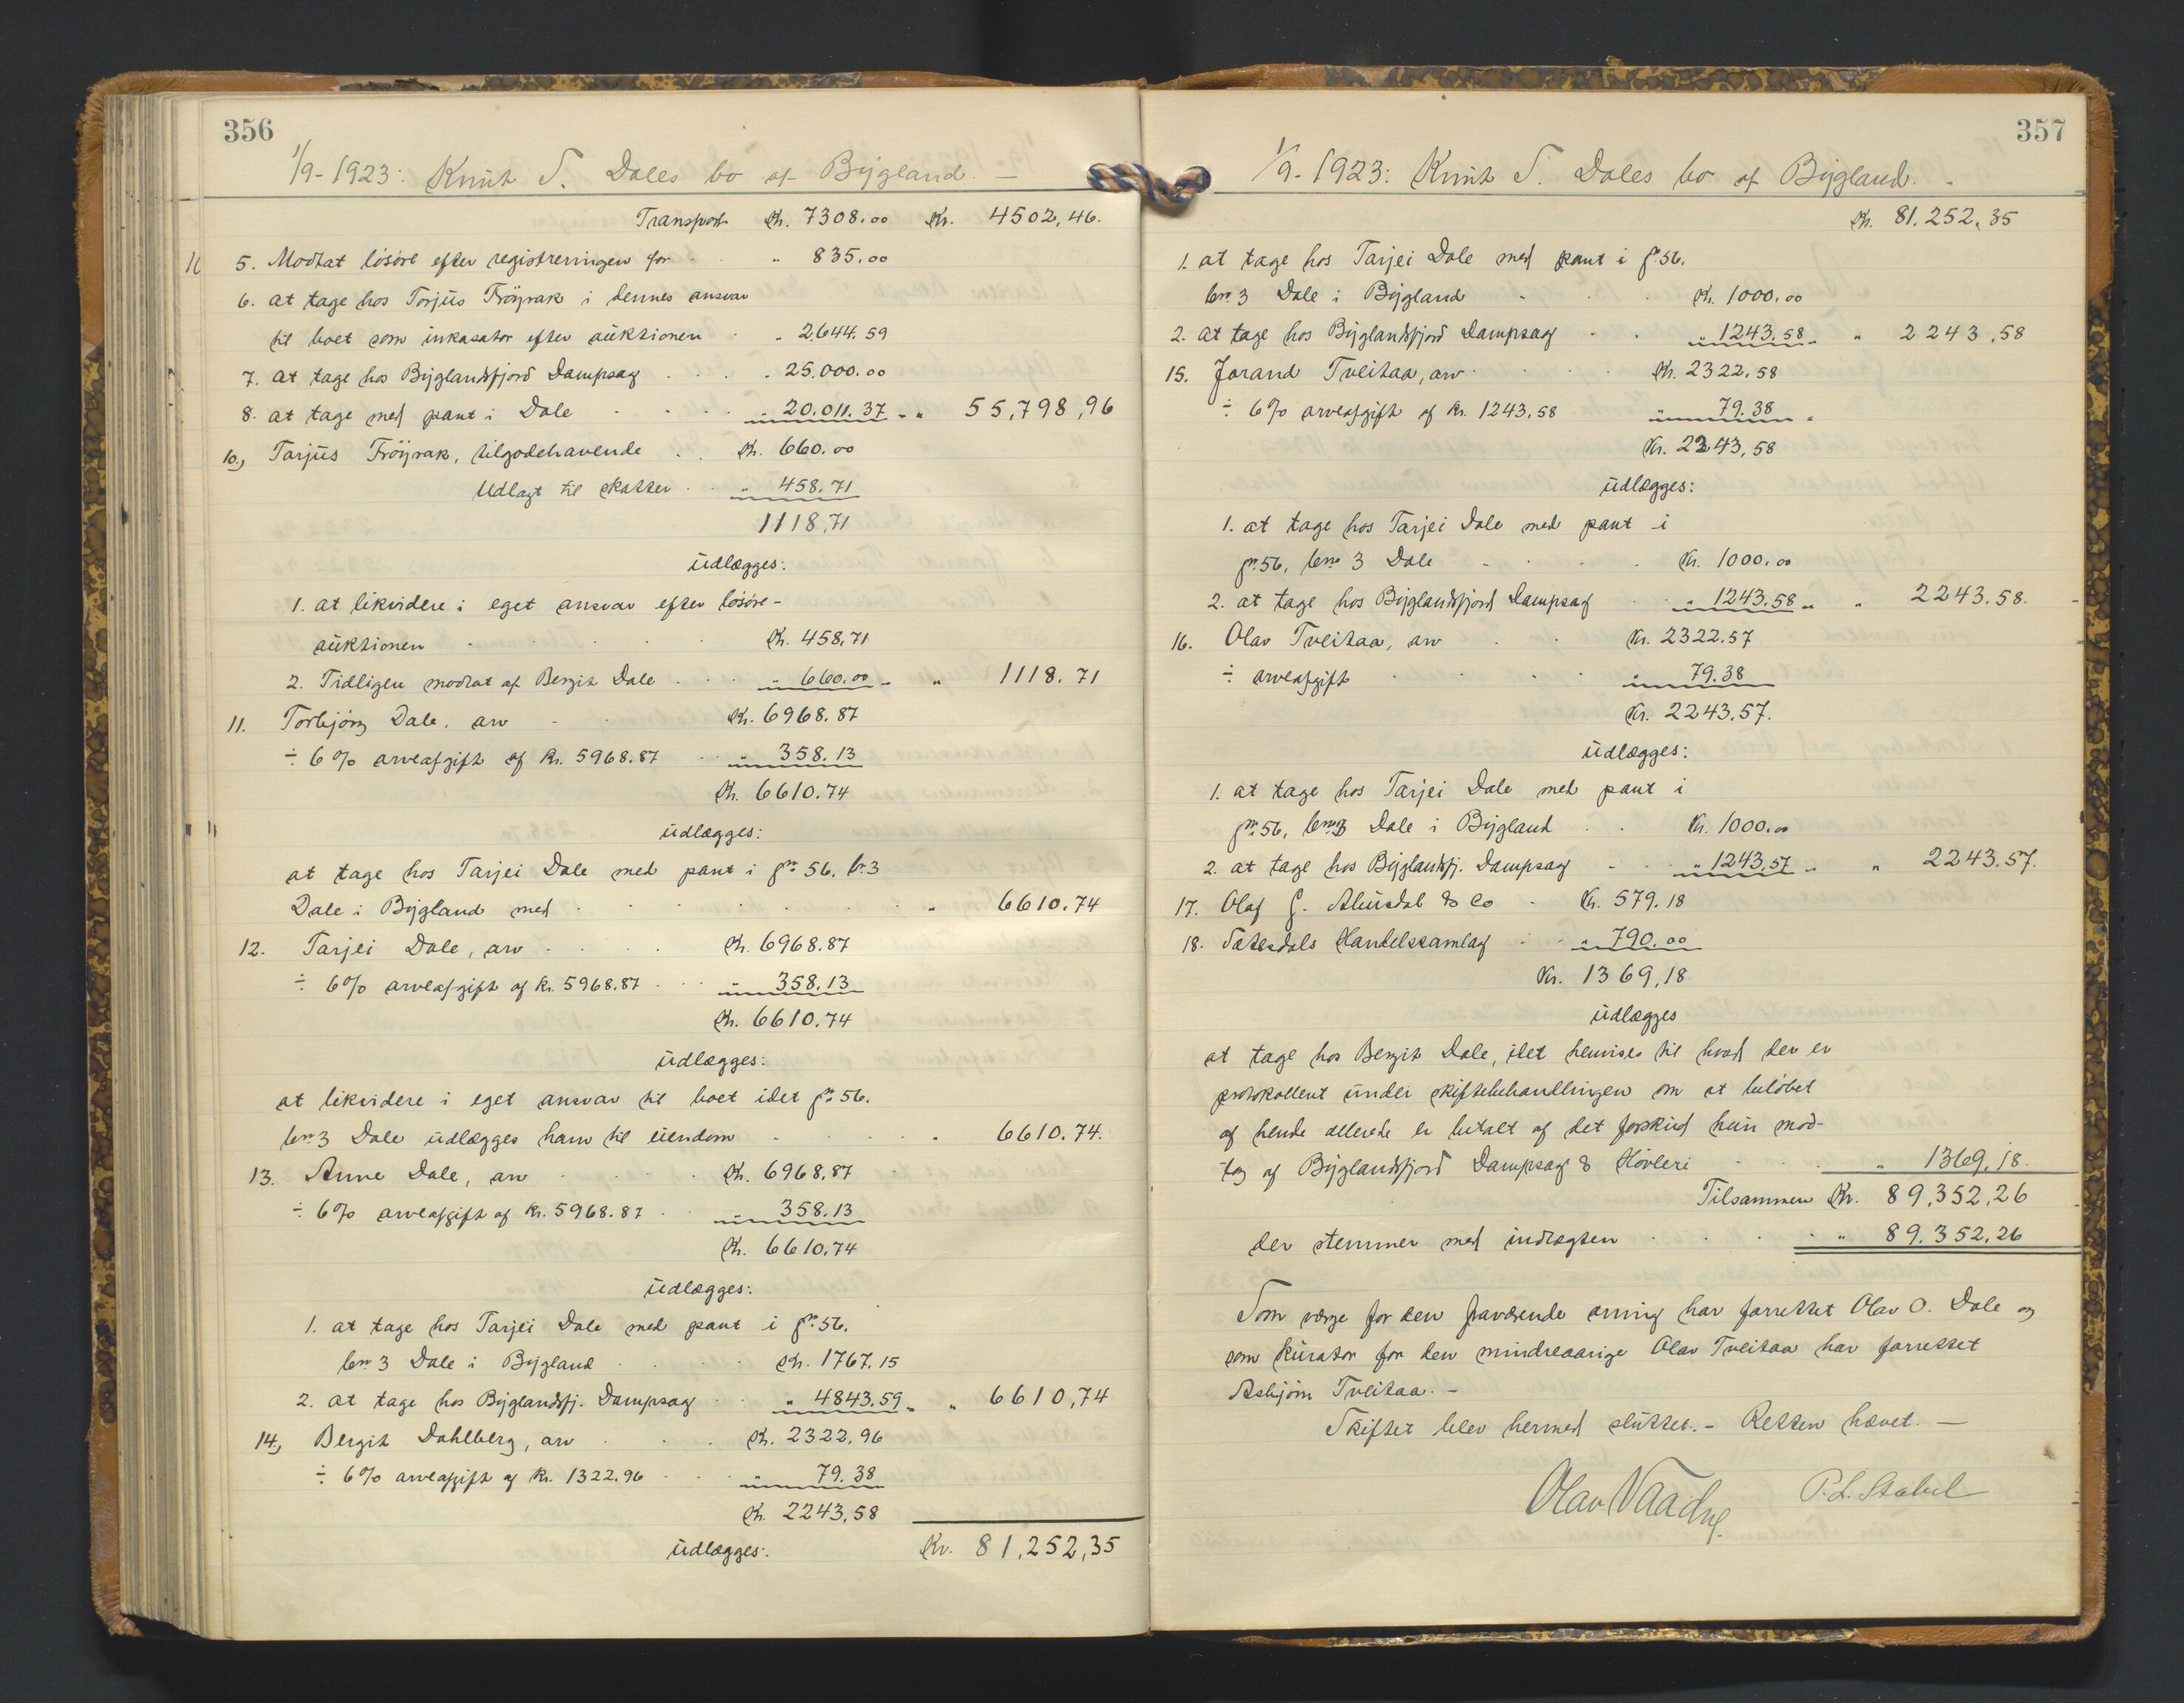 356
1/9-1923: Knut T. Dales bo af Bygland. —
Transport Kr. 7308.00 Kr. 4502,46.
5. Modtat lösöre efter registreringen for " 835.00
6. at tage hos Torjus Fröyrak i dennes ansvar
til boet som inkasator efter auktionen " 2644.59
7. at tage hos Byglandsfjord Dampsag " 25.000.00
8. at tage med pant i Dale " 20.011.37 " " 55,798,96
10., Tarjus Fröyrak, tilgodehavende Kr. 660.00
Udlagt til skatter " 458.71
1118,71
udlægges:
1. at likvidere i eget ansvar efter lösöre-
auktionen Kr. 458,71
2. Tidligere modtat af Bergit Dale " 660.00 " " 1118.71
11. Torbjörg Dale, arv Kr. 6968.87
÷ 6% arveafgift af Kr. 5968.87 " 358.13
Kr. 6610.74
udlægges:
at tage hos Tarjei Dale med pant i gr. 56. br. 3
Dale i Bygland med " 6610.74
12. Tarjei Dale, arv Kr. 6968.87
÷ 6% arveafgift af Kr. 5968.87 " 358.13
Kr. 6610.74
udlægges:
at likvidere i eget ansvar til boet idet gr. 56.
brn 3 Dale udlægges ham til eiendom " 6610.74.
13. Anne Dale, arv Kr. 6968,87
÷ 6% arveafgift af Kr. 5968.87 " 358.13
Kr. 6610,74
udlægges:
1. at tage hos Tarjei Dale med pant i gr. 56.
brn 3 Dale i Bygland Kr. 1767.15
2. at tage hos Byglandsfj. Dampsag " 4843.59 " " 6610,74
14., Bergit Dahlberg, arv Kr. 2322,96
÷ 6% arveafgift af Kr. 1322.96 " 79.38
Kr. 2243,58
udlægges: Kr. 81,252,35
357
1/9-1923: Knut T. Dales bo af Bygland. -
Kr. 81.252,35
1. at tage hos Tarjei Dale med pant i gr. 56.
brn 3 Dale i Bygland Kr. 1000.00
2. at tage hos Byglandsfjord Dampsag " 1243.58 " " 2243,58
15. Jorand Tveitaa, arv Kr. 2322.58
÷ 6% arveafgift af Kr. 1243,58 " 79.38 "
Kr. 2243,58
udlægges:
1. at tage hos Tarjei Dale med pant i
gr. 56, brn 3 Dale Kr. 1000.00
2. at tage hos Byglandsfjord Dampsag " 1243.58 " " 2243.58.
16. Olav Tveitaa, arv Kr. 2322.57
÷ arveafgift " 79.38
Kr. 2243.57.
udlægges:
1. at tage hos Tarjei Dale med pant i
gr. 56, brn 3 Dale i Bygland Kr. 1000.00
2. at tage hos Byglandsfj. Dampsag " 1243,57 " " 2243.57.
17. Olaf G. & Co Kr. 579.18
18. Sætesdals Handelssamlag " 790.00
Kr. 1369,18
udlægges
at tage hos Bergit Dale, idet henvises til hvad der er
protokollert under skiftebehandlingen om at belöbet
af hende allerede er betalt af det forskud hun mod-
tog af Byglandsfjord Dampsag & Hövleri " 1369,18.
Tilsammen Kr. 89,352,26
der stemmer med indtægten " 89.352,26
Som verge for den fraværende arving har forrettet Olav O. Dale og
som kurator for den mindreaarige Olav Tveitaa har forrettet
Asbjörn Tveitaa. -
Skiftet blev hermed sluttet. - Retten hævet. —
Olav P. L. Stabel